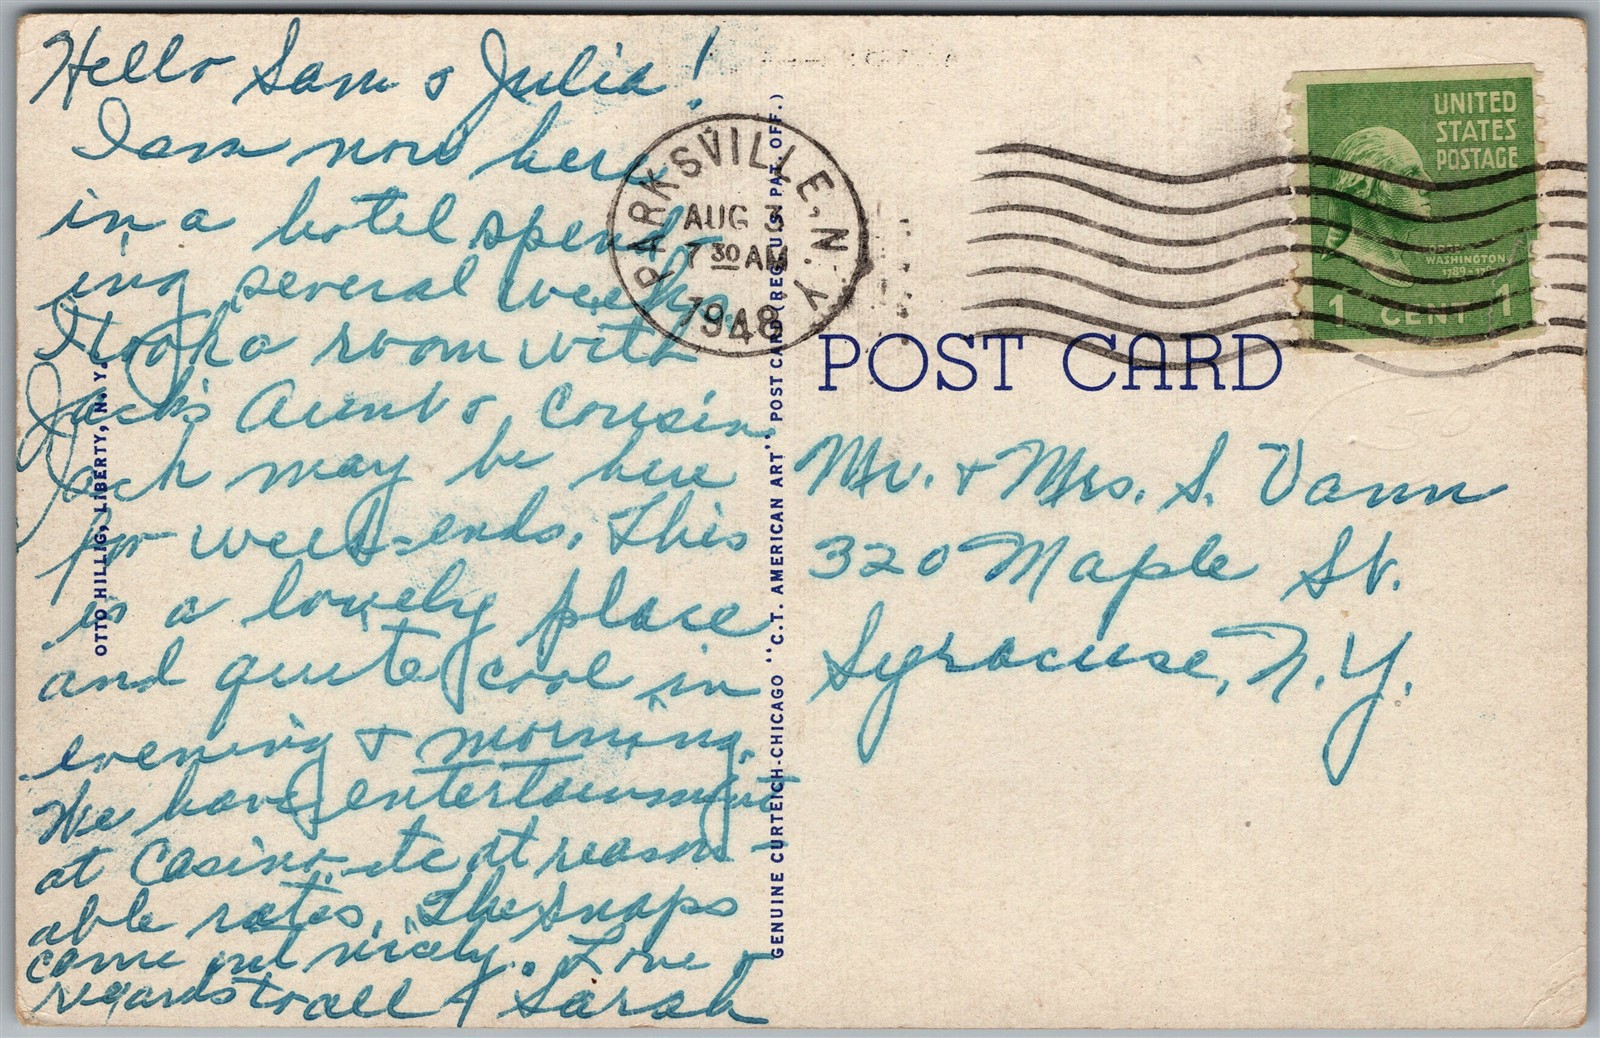 Hello Sam & Julia!
I am now here
in a hotel spend-
ing several weeks.
I took a room with
Jack's Aunt & Cousin.
Jack may be here
for week-ends. This
is a lovely place
and quite cool in
evening & morning.
We have entertainment
at Casino etc at reason-
able rates. The snaps
came out nicely. Love &
regards to all Sarah
OTTO HILLIG, LIBERTY, N.Y.
GENUINE CURTEICH-CHICAGO "C.T. AMERICAN ART" POST CARD (REG. U.S. PAT. OFF.)
PARKSVILLE, N.Y.
AUG 3
7 30 AM
1948
UNITED
STATES
POSTAGE
WASHINGTON
1 CENT 1
POST CARD
Mr. & Mrs. S. Vann
320 Maple St.
Syracuse, N.Y.